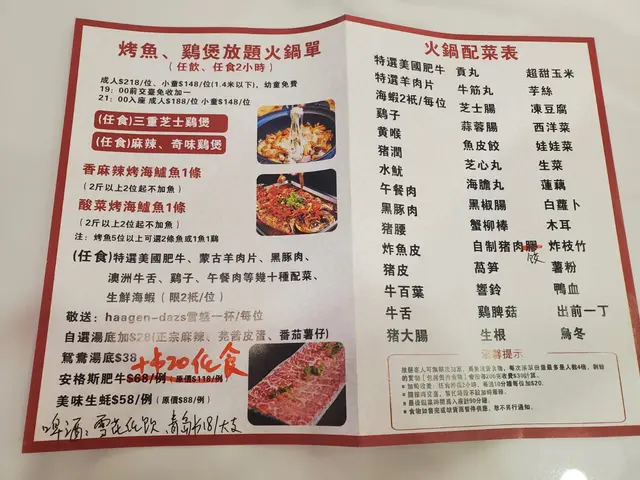 烤魚、鷄煲放題火鍋單
（任飲、任食2小時）
成人$218/位、小童$148/位(1.4米以下), 幼童免費
19：00前交臺免收加一
21：00入座 成人$188/位 小童$148/位
(任食)三重芝士鷄煲
(任食)麻辣、奇味鷄煲
香麻辣烤海鱸魚1條
（2斤以上2位起不加魚）
酸菜烤海鱸魚1條
（2斤以上2位起不加魚）
注： 烤魚5位以上可選2條魚或1魚1鷄
(任食)特選美國肥牛、蒙古羊肉片、黑豚肉、
澳洲牛舌、鷄子、午餐肉等幾十種配菜、
生鮮海蝦（限2祇/位）
敬送：haagen-dazs雪糕一杯/每位
自選湯底加$28(正宗麻辣、芫茜皮蛋、番茄薯仔)
鴛鴦湯底$38
+$20任食
安格斯肥牛$68/例（原價$118/例）
美味生蚝$58/例（原價$88/例）
啤酒：雪花任飲 青島$18/大支
火鍋配菜表
特選美國肥牛 貢丸 超甜玉米
特選羊肉片 牛筋丸 芋絲
海蝦2祇/每位 芝士腸 凍豆腐
鷄子 蒜蓉腸 西洋菜
黄喉 魚皮餃 娃娃菜
猪潤 芝心丸 生菜
水魷 海膽丸 蓮藕
午餐肉 黑椒腸 白蘿卜
黑豚肉 蟹柳棒 木耳
猪腰 自制猪肉膠 炸枝竹
餃
炸魚皮 萵笋 薯粉
猪皮 響鈴 鴨血
牛百葉 鷄脾菇 出前一丁
牛舌 生根 烏冬
猪大腸
溫馨提示